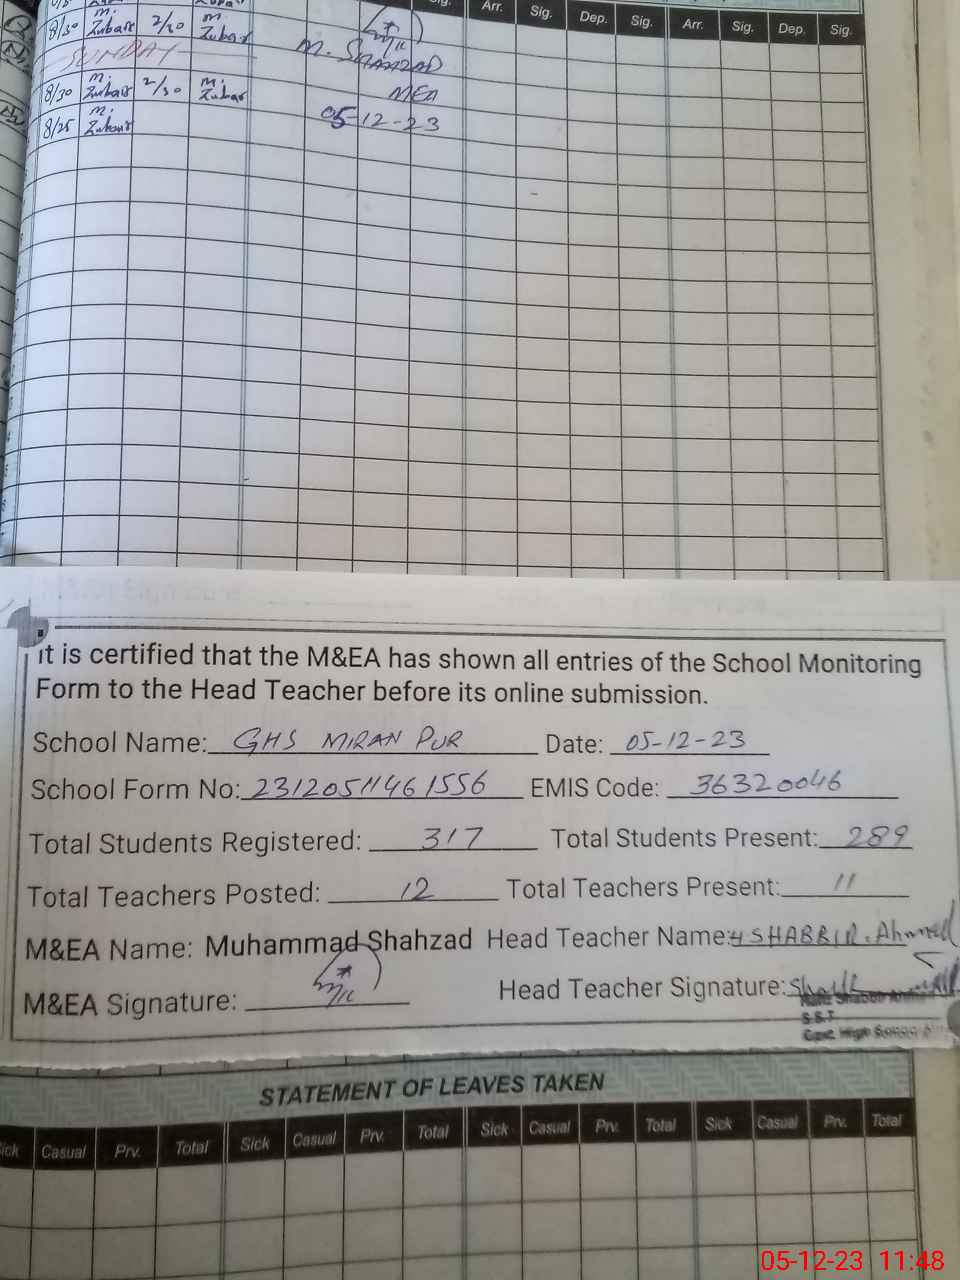 Sig. Arr. Sig. Dep. Sig. Arr. Sig. Dep. Sig.
8/30 M. Zubair 2/30 M. Zubair
SUNDAY
M. SHAHZAD
8/30 M. Zubair 2/30 M. Zubair
MEA
8/25 M. Zubair
05-12-23
it is certified that the M&EA has shown all entries of the School Monitoring
Form to the Head Teacher before its online submission.
School Name: GHS MIRAN PUR Date: 05-12-23
School Form No: 23120511461556 EMIS Code: 36320046
Total Students Registered: 317 Total Students Present: 289
Total Teachers Posted: 12 Total Teachers Present: 11
M&EA Name: Muhammad Shahzad Head Teacher Name: SHABBIR. Ahmed
M&EA Signature: Head Teacher Signature:
S.S.T
Govt. High School
STATEMENT OF LEAVES TAKEN
Sick Casual Prv. Total Sick Casual Prv. Total Sick Casual Prv. Total Sick Casual Prv. Total
05-12-23 11:48